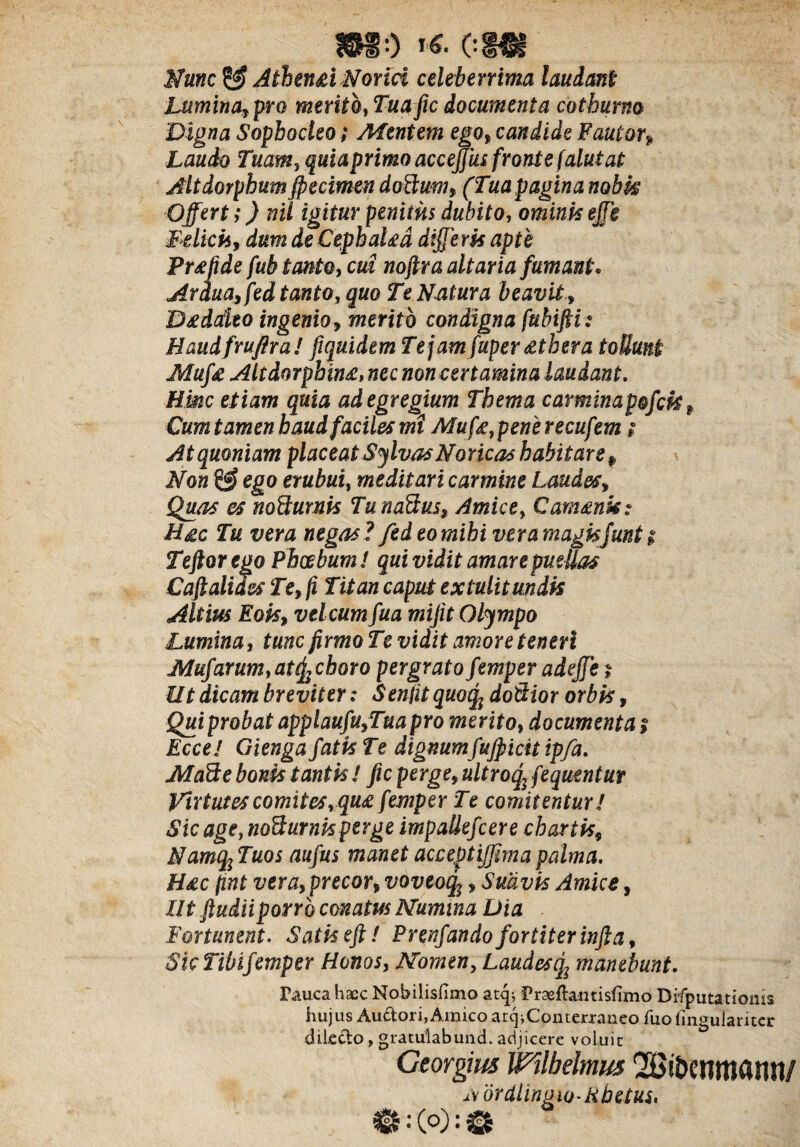 :) 16. (:
Nunc & Athenæi Norici celeberrima laudant
Lumina, pro meritò, Tua ſic documenta cothurno
Digna Sophocleo; Mentem ego, candide Fautor,
Laudo Tuam, quia primo acceſſus fronte ſalutat
Altdorphum ſpecimen doctum, (Tua pagina nobis
Offert;) nil igitur penitùs dubito, ominis eſſe
Felicis, dum de Cephalæâ differis aptè
Præſide ſub tanto, cui noſtra altaria fumant.
Ardua, ſed tanto, quo Te Natura beavit,
Dædaleo ingenio, meritò condigna ſubiſti:
Haud fruſtra! ſiquidem Te jam ſuper æthera tollunt
Muſæ Altdorphinæ, nec non certamina laudant.
Hinc etiam quia ad egregium Thema carmina poſcis,
Cum tamen haud faciles mî Muſæ, penè recuſem;
At quoniam placeat Sylvas Noricas habitare,
Non & ego erubui, meditari carmine Laudes,
Quas es nocturnis Tu nactus, Amice, Camænis:
Hæc Tu vera negas? ſed eo mihi vera magis ſunt;
Teſtor ego Phœbum! qui vidit amare puellas
Caſtalides Te, ſi Titan caput extulit undis
Altius Eois, vel cum ſua miſit Olympo
Lumina, tunc firmo Te vidit amore teneri
Muſarum, atq; choro pergrato ſemper adeſſe;
Ut dicam breviter: Senſit quoq; doctior orbis,
Qui probat applauſu, Tua pro merito, documenta;
Ecce! Gienga ſatis Te dignum ſuſpicit ipſa.
Macte bonis tantis! ſic perge, ultroq; ſequentur
Virtutes comites, quæ ſemper Te comitentur!
Sic age, nocturnis perge impalleſcere chartis,
Namq; Tuos auſus manet acceptiſſima palma.
Hæc ſint vera, precor, voveoq;, Suavis Amice,
Ut ſtudii porrò conatus Numina Dia
Fortunent. Satis eſt! Prenſando fortiter inſta,
Sic Tibi ſemper Honos, Nomen, Laudesq; manebunt.
Pauca hæc Nobilisſimo atq; Præſtantisſimo Diſputationis
hujus Auctori, Amico atq; Conterraneo ſuo ſingulariter
dilecto, gratulabund. adjicere voluit
Georgius Wilhelmus Widenmann/
Nördlingio-Rhetus.
:(o):